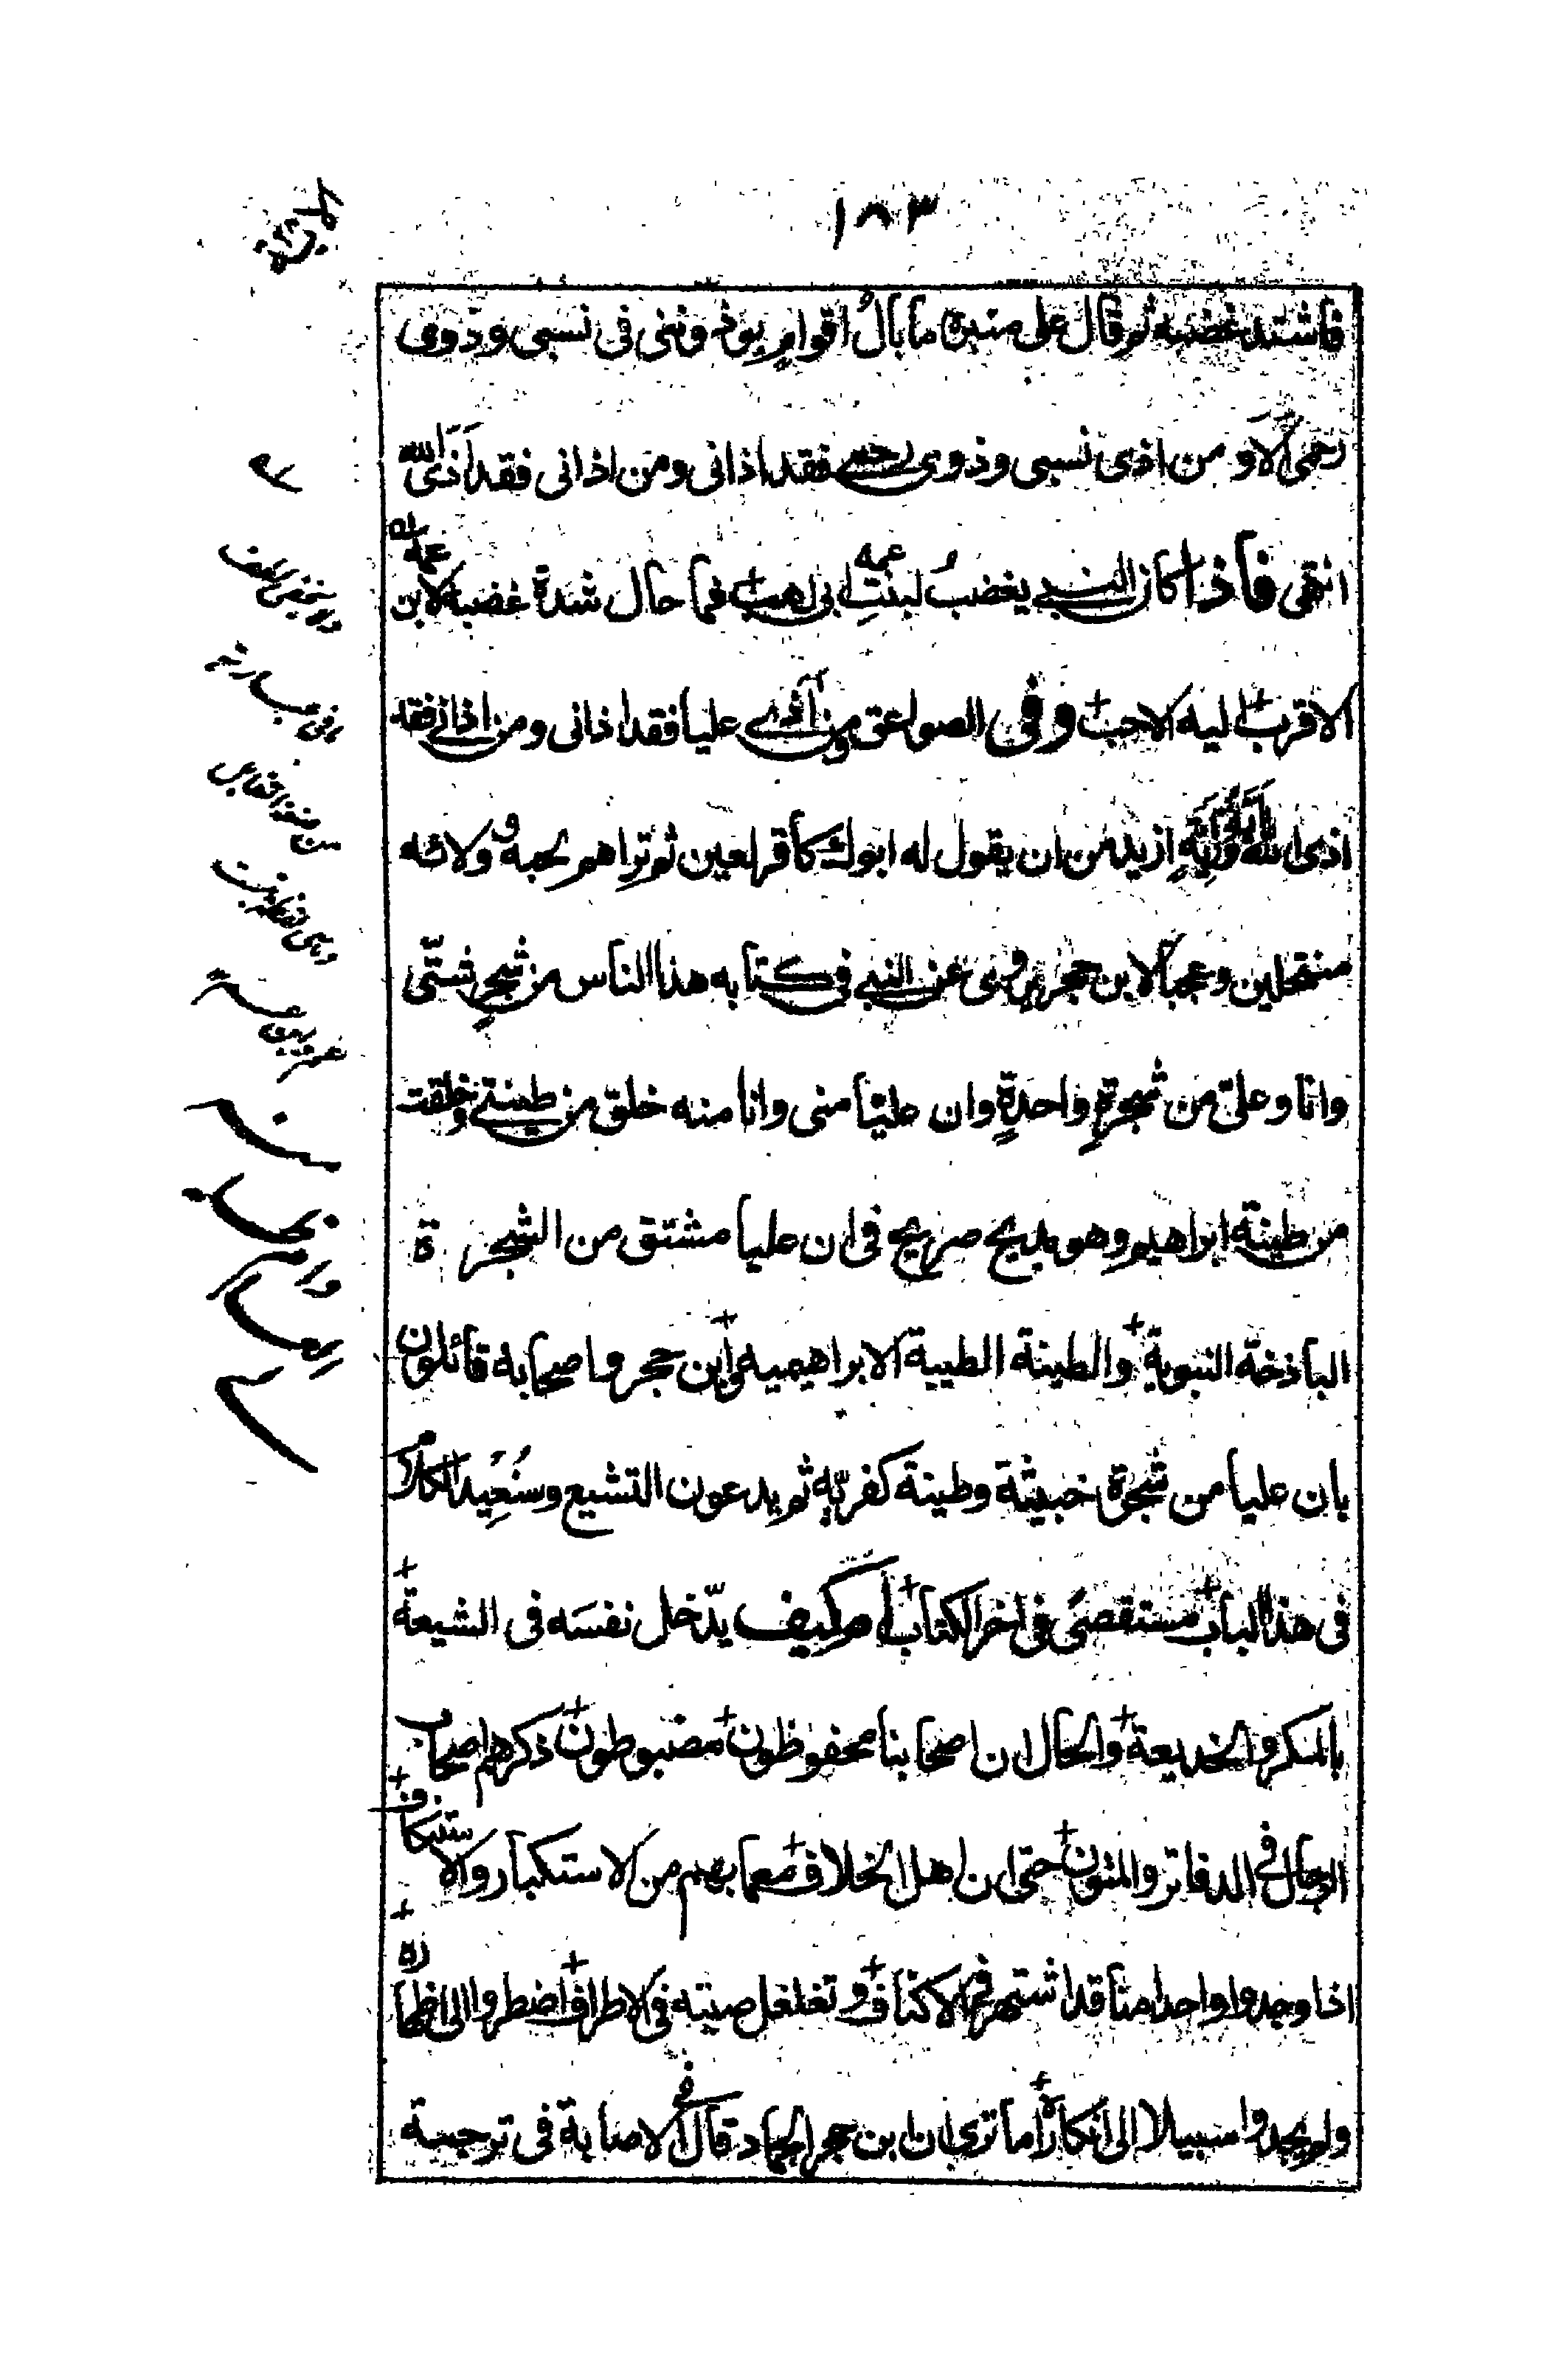 ١٨٣
فاشتد غضبه ثم قال على منبره ما بالُ اقوامٍ يوذونني فى نسبى وذوى
رحمى الاَ ومن اذى نسبى وذوى رحمى فقد اذانى ومن اذانى فقد اَذَى الله
انتهى فاذا كان النبى يغضبُ لبنتِ عمه ابى لهب فما حال شدة غضبه لابن عمه
الاقرب اليه الاحب وفى الصواعق من آذى عليا فقد اذانى ومن اذانى فقد
اذى اللهَ ازيد من ان يقول له ابوك كافر لعين ثم تراهم لحبه وولائه
منتحلين وعجبا لابن حجر يروى عن النبى فى كتابه هذا الناس من شجرٍ شتّى
وانا وعلىّ من شجرةٍ واحدةٍ وان عليّا منى وانا منه خلق من طينتى وخلقت
من طينة ابراهيم وهو بديح صريح فى ان عليا مشتق من الشجرة
الباذخة النبوية والطينة الطيبة الابراهيميه وابن حجر واصحابه قائلون
بان عليا من شجرة خبيثة وطينة كفريّه ثم يدعون التشيع وسنُعِيد الكلام
فى هذا الباب مستقصىً فى اخر الكتاب ام كيف يدّخل نفسَه فى الشيعة
بالمكر والخديعة والحال ان اصحابنا محفوظون مضبوطون ذكرهم اصحاب
الرجال فى الدفاتر والمتون حتى ان اهل الخلاف معما بهم من الاستكبار والاستنكاف
اذا وجدوا واحدا منا قد اشتهر فى الاكناف وتغلغل صيته فى الاطراف اضطروا الى اظهاره
ولم يجدوا سبيلا الى انكاره اما ترى ان ابن حجر الجماد قال فى الاصابة فى ترجمة